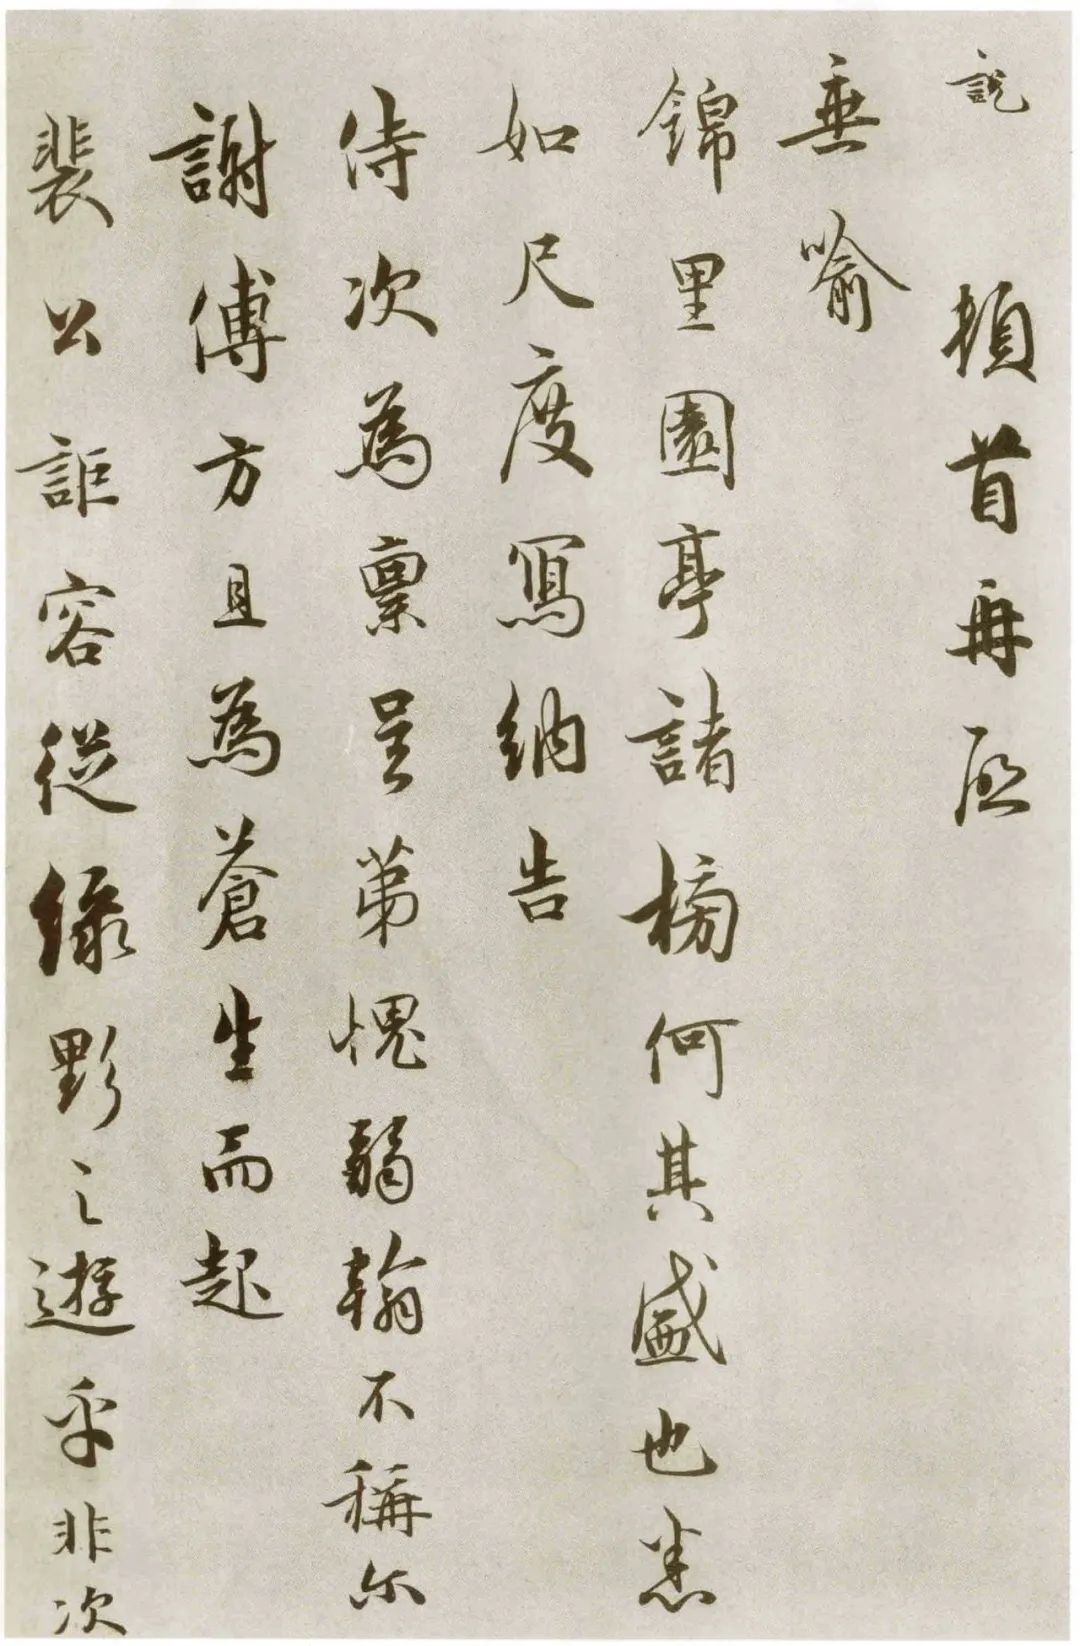 說 頓首再啟
垂喻
錦里園亭諸榜何其盛也悉
如尺度寫納告
侍次為稟呈第愧弱翰不稱尔
謝傅方且為蒼生而起
裴公詎容從綠野之遊乎非次